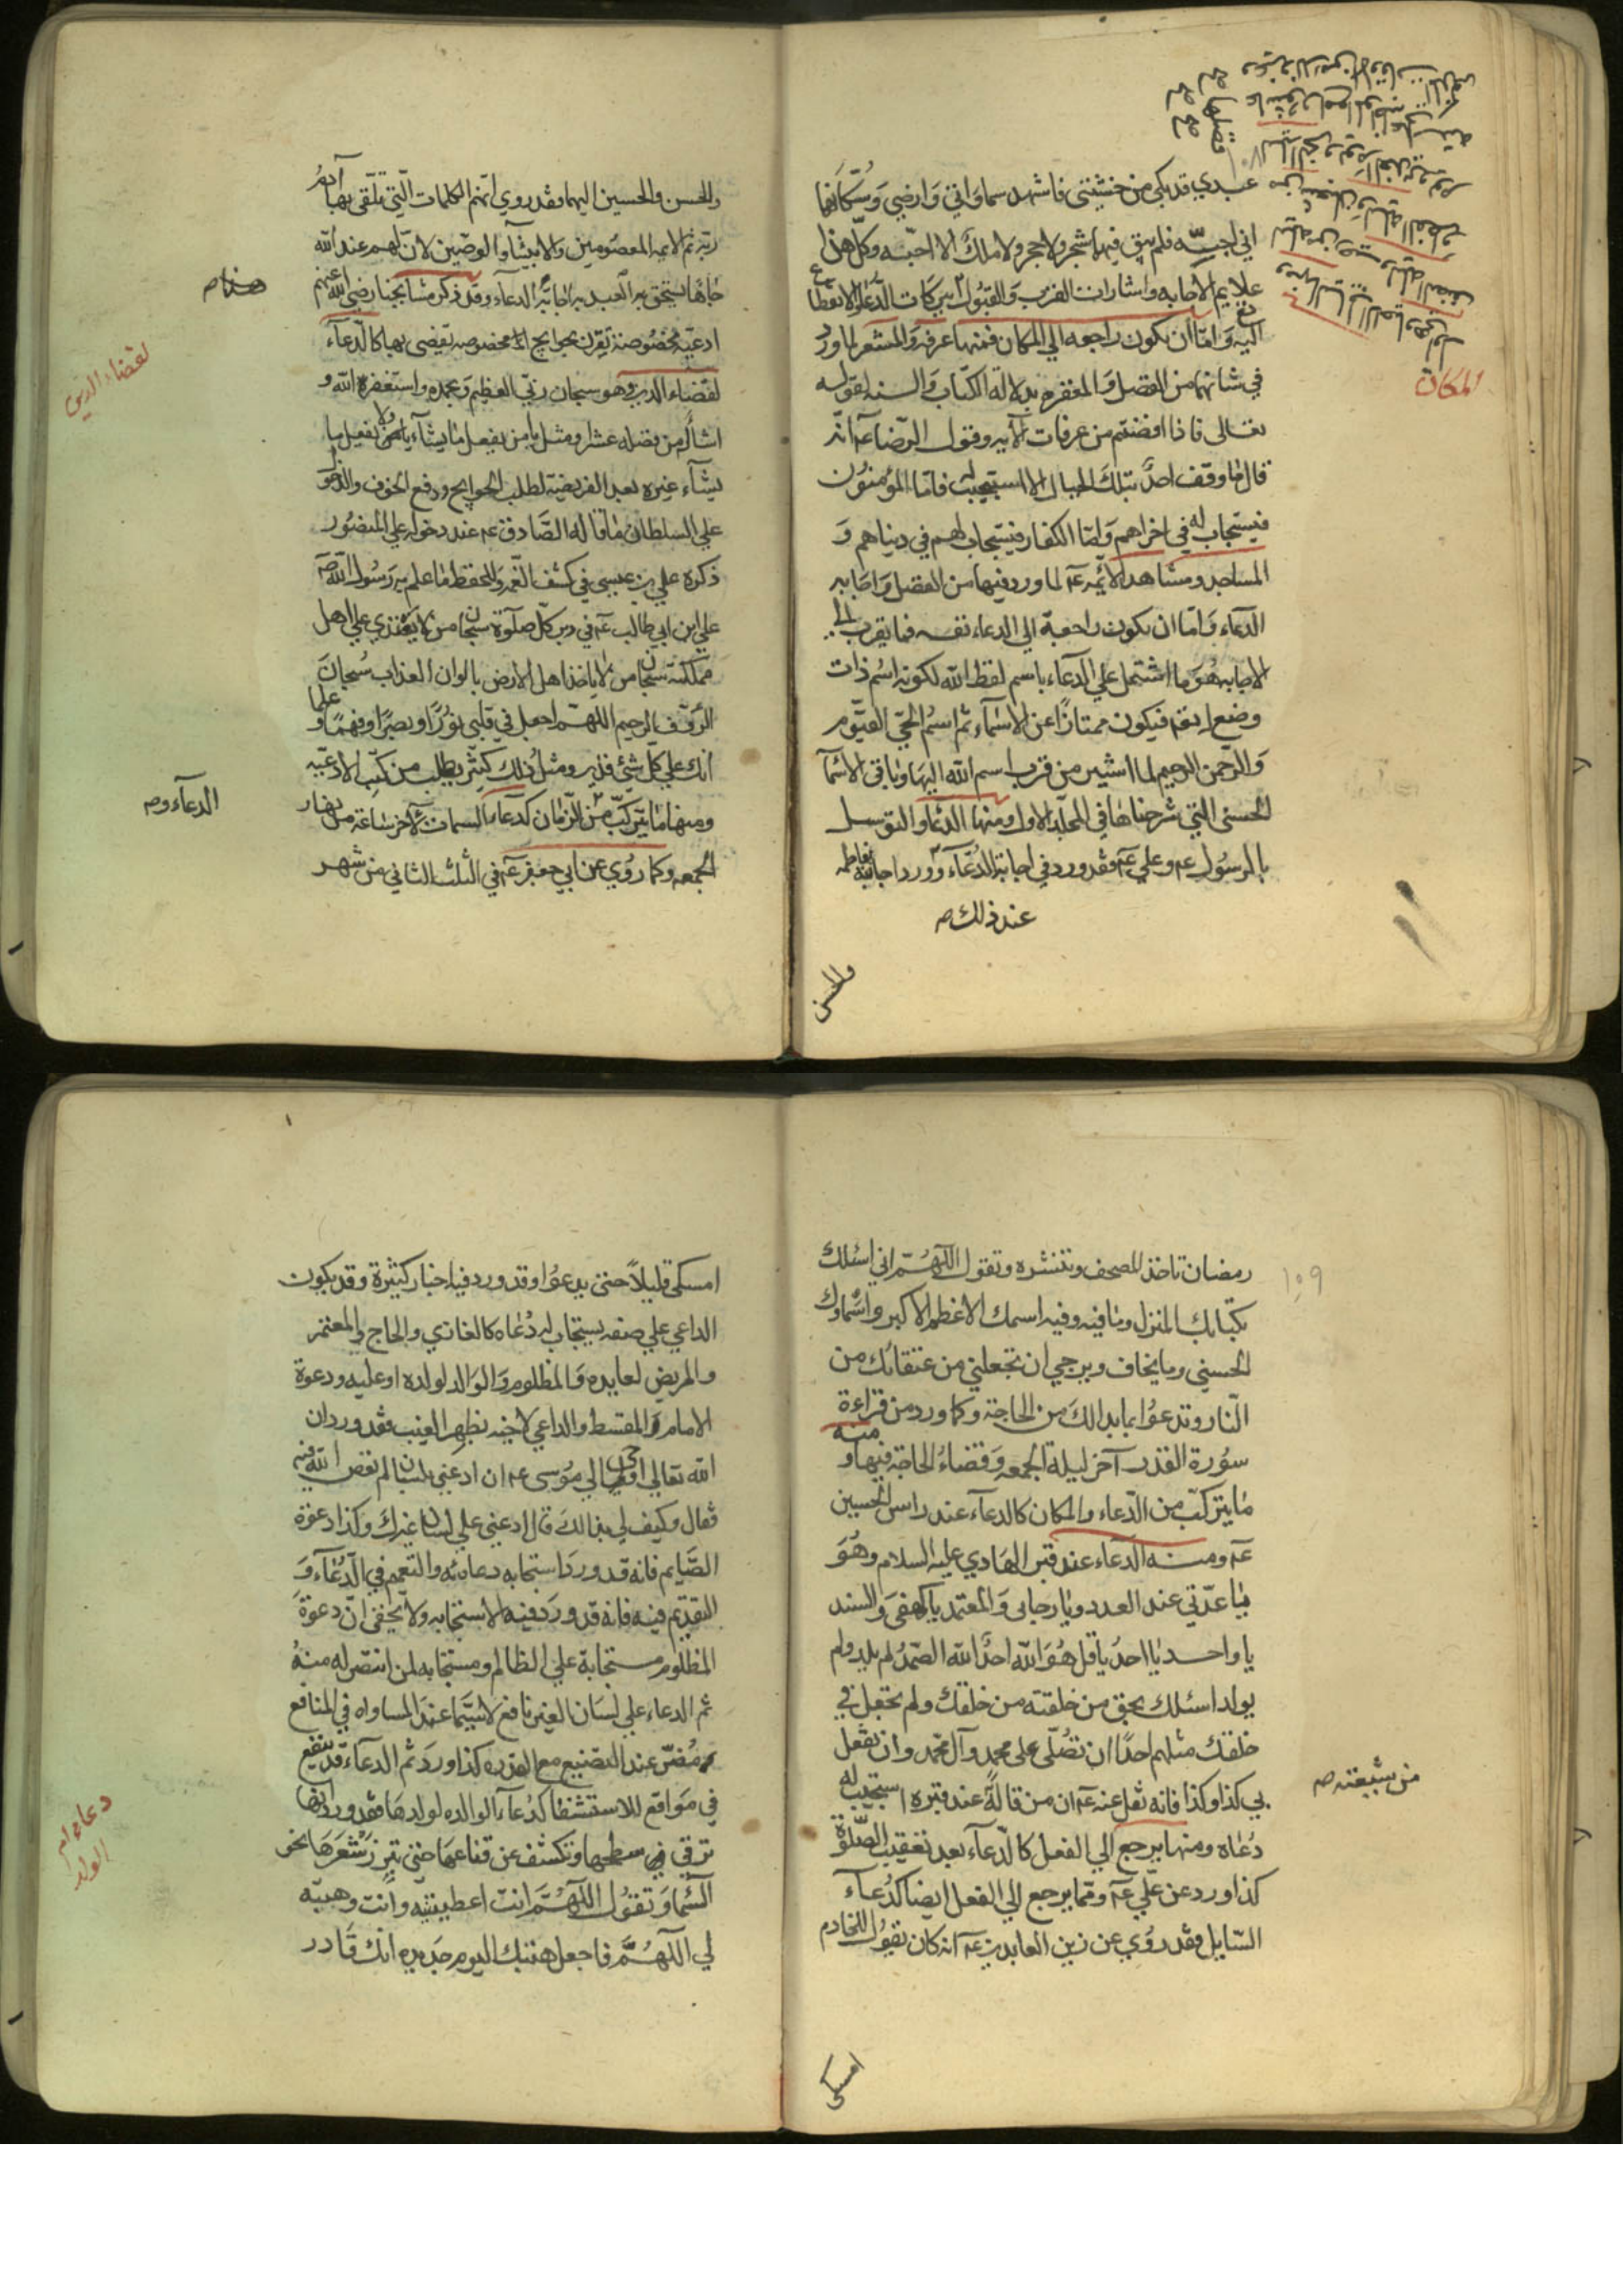 عبدي قد بكى من خشيتي فاشهد سماواتي وارضي وسكانها
اني احبه فلم يبق فيها شجر ولا حجر ولا ملك الا احبه وكل هذا
علايم الاجابه واشارات القرب والقبول
اليه واما ان يكون راجعه الي المكان فمنها عرفه والمشعر لما ورد
في شانهما من الفضل والمغفره بدلالة الكتاب والسنه لقوله
تعالى فاذا افضتم من عرفات الآيه وقول الرضا عـ انه
قال ما وقف احد بتلك الجبال الا استجيب له فاما المؤمنون
فيستجاب لهم في اخراهم واما الكفار فيستجاب لهم في دنياهم و
المساجد ومشاهد الائمه عـ لما ورد فيها من الفضل واجابه
الدعاء واما ان يكون راجعة الي الدعاء نفسه فما يقرب الي
الاجابه هو ما اشتمل علي الدعاء باسم لفظ الله لكونه اسم ذات
وضع له فيكون ممتازا عن الاسماء ثم اسم الحي القيوم
والرحمن الرحيم لما اشير من قرب اسم الله اليها وباقي الاسما
الحسنى التي شرحناها في المجلد الاول ومنها الدعاء والتوسل
بالرسول عـ وعلي عـ فقد ورد في اجابة الدعاء وورد اجابته
عند ذلك صح
المكان
١٠٨
والحسن
والحسن والحسين اليهما فقد روي انهم الكلمات التي تلقى بها آدم
ربه ثم الايمه المعصومين والانبياء والوصين لان لهم عند الله
جاها يستحق به العبد به اجابة الدعاء وقد ذكر مشايخنا رضي الله عنهم
ادعية مخصوصة تقرن بحوايج مخصوصه تقضى بها كالدعاء
لقضاء الدين وهو سبحان ربي العظيم وبحمده واستغفره الله و
اسأله من فضله عشرا ومثل يا من يفعل ما يشآء ولا يفعل ما
يشآء غيره بعد الفريضة لطلب الحوايج ودفع الخوف والدخول
علي السلطان ما قاله الصادق عـ عند دخوله علي المنصور
ذكره علي بن عيسى في كشف الغمه وللحفظ ما علم به رسول الله ص
علي ابن ابي طالب عـ في دبر كل صلوة سبحان من لا يعتدي علي اهل
مملكته سبحان من لا ياخذ اهل الارض بالوان العذاب سبحان
الرؤف الرحيم اللهم اجعل في قلبي نورا وبصرا وفهما وعلما
انك علي كل شيء قدير ومثل ذلك كثير يطلب من كتب الادعيه
ومنها ما يتركب من الزمان كدعاء السمات لآخر ساعة من نهار
الجمعه وكما روي عن ابي جعفر عـ في الثلث الثاني من شهر
لقضاء الدين
الدعاء و صح
رمضان تاخذ المصحف وتنشره وتقول اللهم اني اسئلك
بكتابك المنزل وما فيه وفيه اسمك الاعظم الاكبر واسماوك
الحسنى وما يخاف ويرجي ان تجعلني من عتقائك من
النار وتدعوا بما بدا لك من الحاجة وكما ورد من قراءة
سورة القدر آخر ليلة الجمعه وقضاء الحاجة فيها ومنه
ما يتركب من الدعاء والمكان كالدعآء عند راس الحسين
عـ ومنه الدعاء عند قبر الهادي عليه السلام وهو
يا عدتي عند العدد ويا رجائى والمعتمد يا كهفى والسند
يا واحد يا احد يا قل هو الله احد الله الصمد لم يلد ولم
يولد اسئلك بحق من خلقته من خلقك ولم تجعل في
خلقك مثلهم احدا ان تصلي على محمد وآل محمد وان تفعل
بي كذا وكذا فانه نقل عنه عـ ان من قاله عند قبره استجيب له
دعاه ومنها يرجع الي الفعل كالدعآء بعد تعقيب الصلوة
كذا ورد عن علي عـ ومما يرجع الي الفعل ايضا كدعآء
السايل فقد روي عن زين العابدين عـ انه كان يقول للخادم
١٠٩
من شيعته صح
امسكى
امسكى قليلا حتى يدعوا وقد ورد فيه اخبار كثيرة وقد يكون
الداعي علي صفه يستجاب له دعاه كالغازي والحاج والمعتمر
والمريض لعايده والمظلوم والوالد لولده او عليه ودعوة
الامام والمقسط والداعي لاخيه بظهر الغيب فقد ورد ان
الله تعالى اوحى الي موسى عـ ان ادعني بلسان لم تعص الله فيه
فقال وكيف لي بذالك قال ادعني علي لسان غيرك وكذا دعوة
الصايم فانه قد ورد استجابه دعائه والتعمم في الدعآء و
التقديم فيه فانه قد ورد فيه الاستجابه ولا يخفى ان دعوة
المظلوم مستجابة علي الظالم ومستجابه لمن انتصر له منه
ثم الدعاء علي لسان الغير نافع لا سيما عند المساواه في المنافع
عند التصنيع مع القدره كذا ورد ثم الدعاء قد ينفع
في مواقع للاستشفا كدعآء الوالده لولدها فقد ورد انها
ترقي سطحها وتكشف عن قناعها حتى تبرز شعرها نحو
السما وتقول اللهم انت اعطيتنيه وانت وهبته
لي اللهم فاجعل هبتك اليوم جديده انك قادر
دعاء ام
الولد